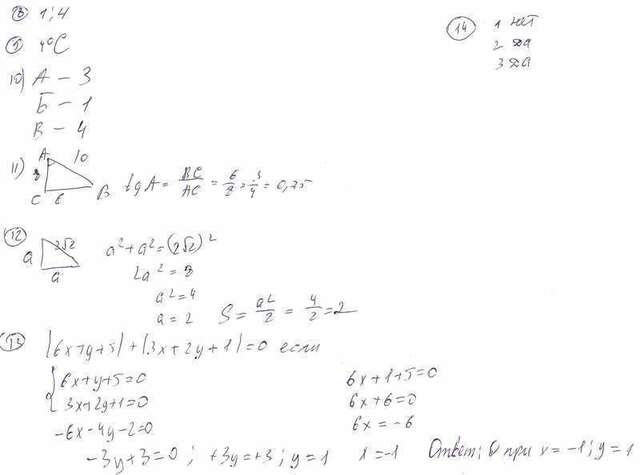 8 1; 4
9 4°C
10) А – 3
Б – 1
В – 4
11) A 10 8 C 6 B tg A = BC/AC = 6/8 = 3/4 = 0,75
12 a 2√2 a a² + a² = (2√2)²
2a² = 8
a² = 4
a = 2 S = a²/2 = 4/2 = 2
13 |6x+y+5| + |3x+2y+1| = 0 если
6x+y+5=0
3x+2y+1=0
-6x-4y-2=0
-3y+3=0; +3y=+3; y=1
6x+1+5=0
6x+6=0
6x=-6
x=-1 Ответ: 0 при x=-1; y=1
14 1 нет
2 да
3 да